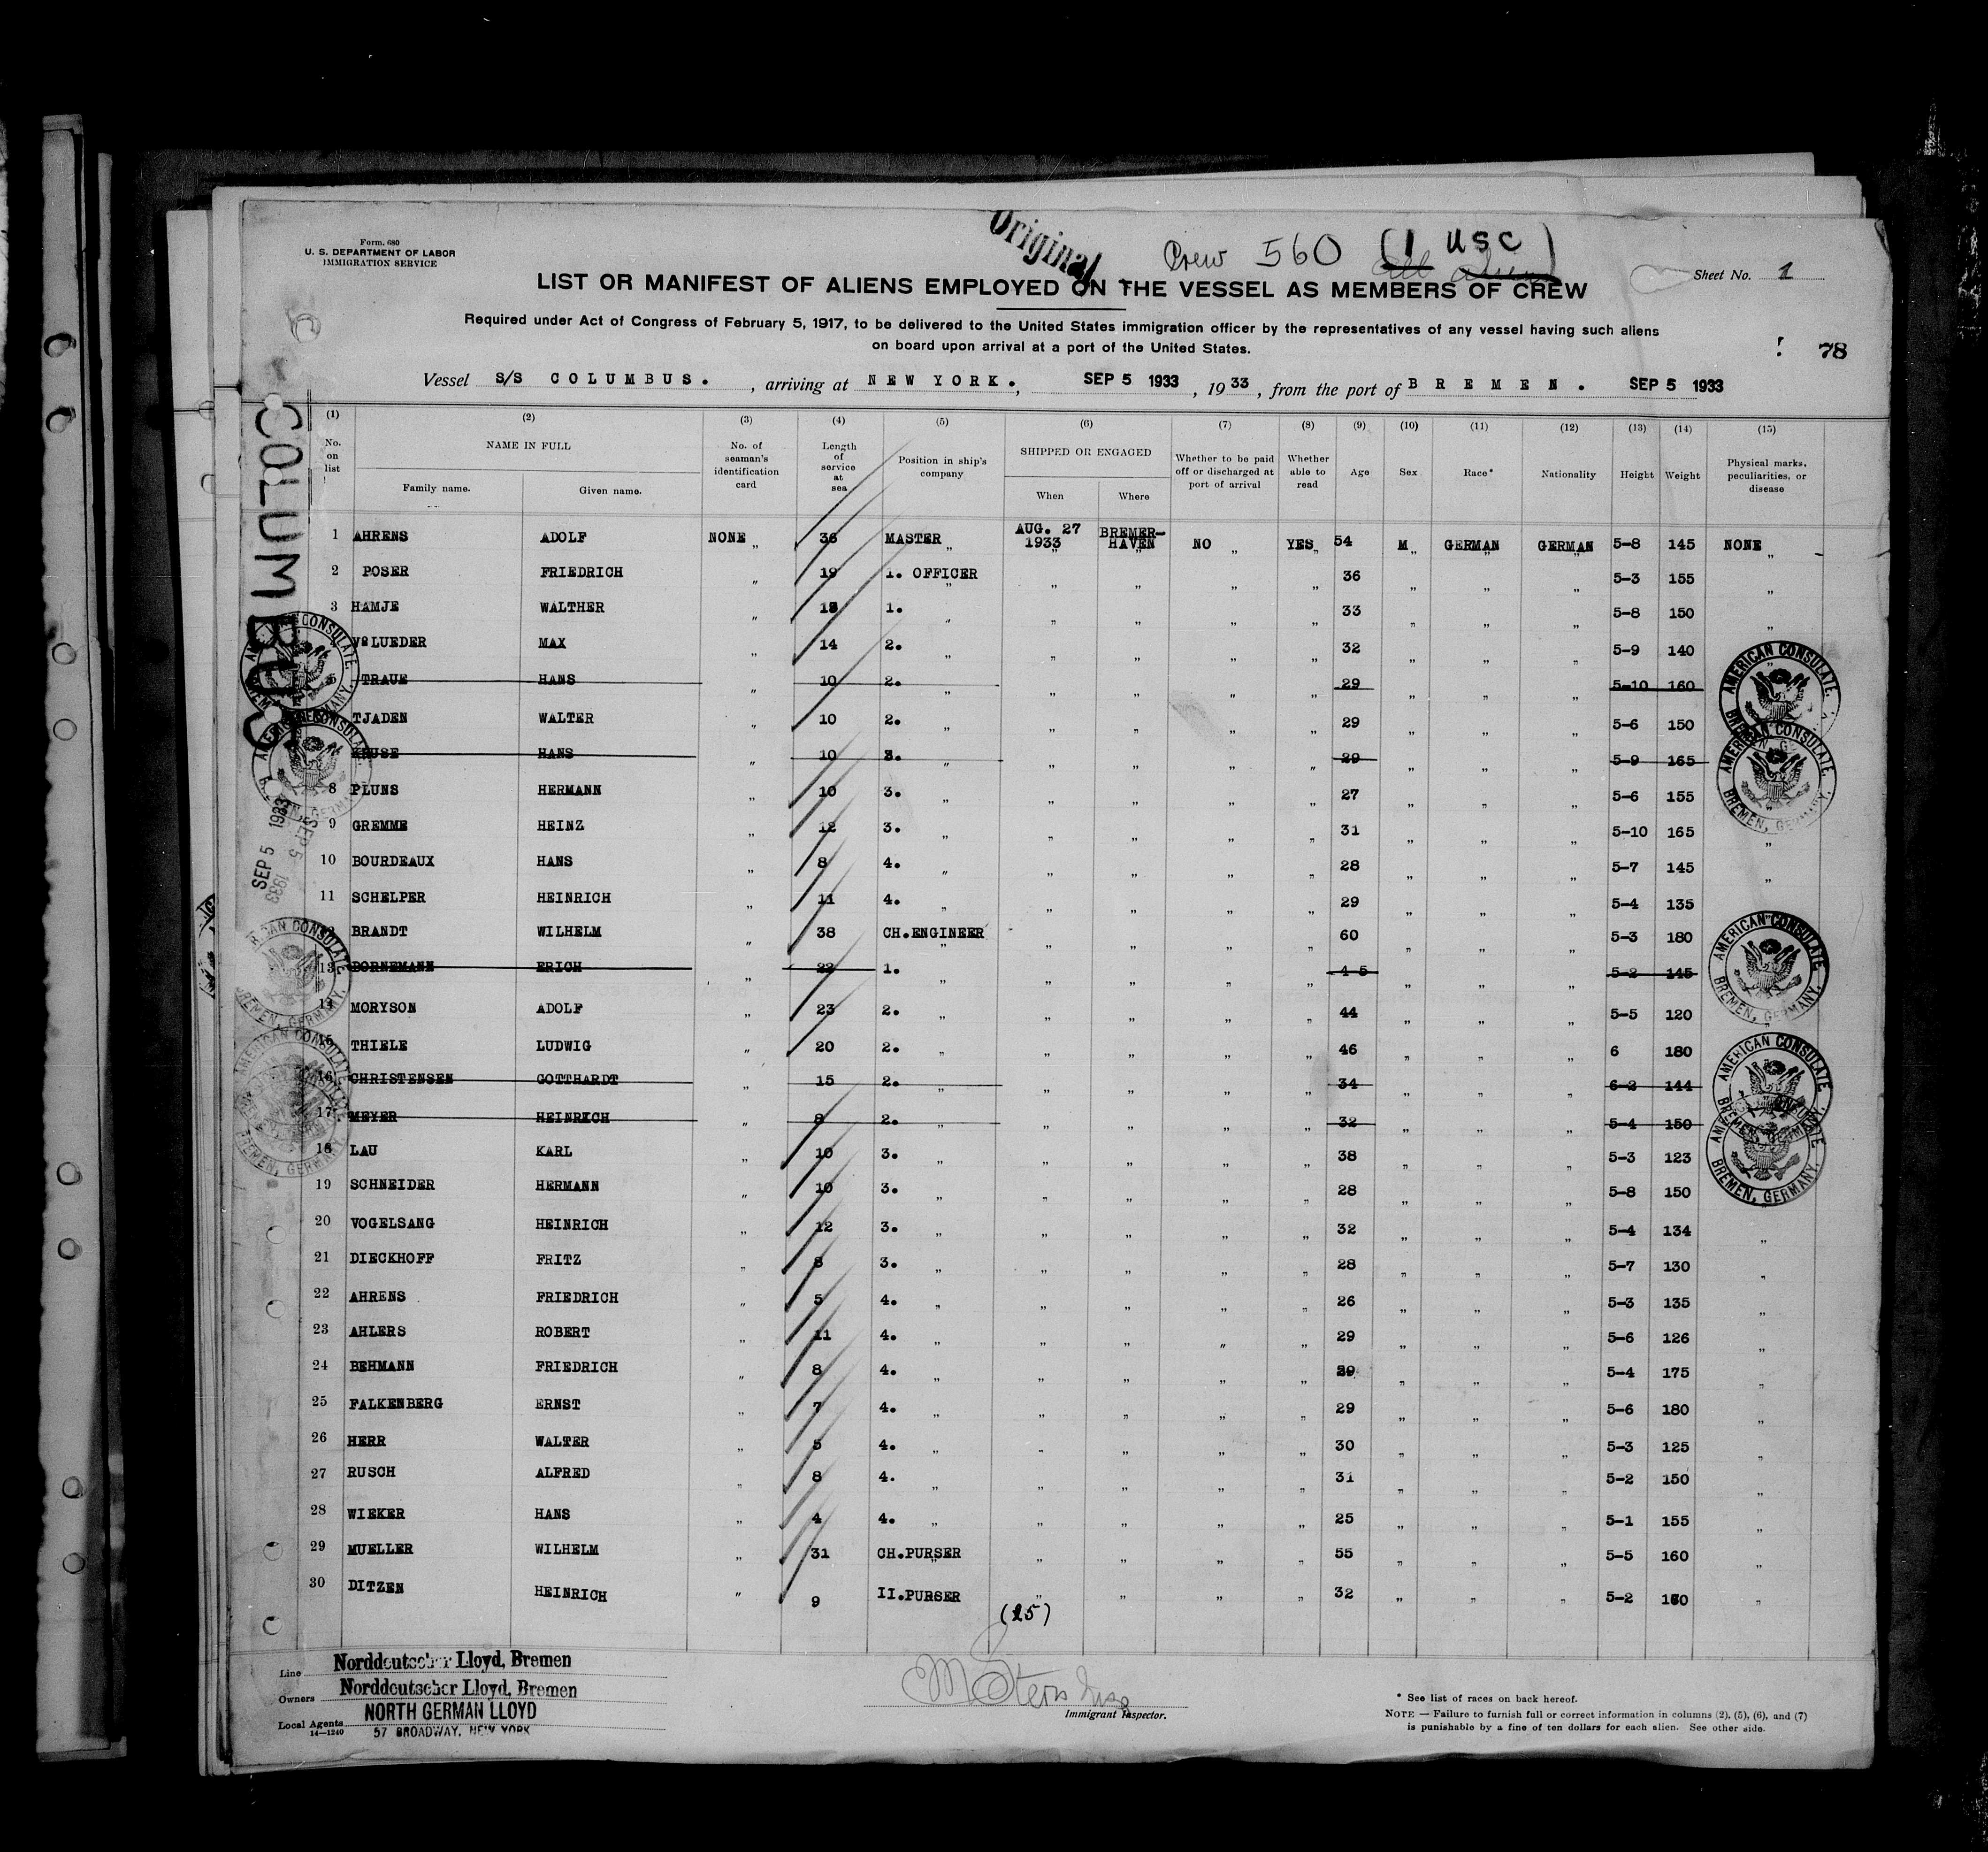 Original
Crew 560 (1 USC)
Form. 680
U. S. DEPARTMENT OF LABOR
IMMIGRATION SERVICE
Sheet No. 1
LIST OR MANIFEST OF ALIENS EMPLOYED ON THE VESSEL AS MEMBERS OF CREW
Required under Act of Congress of February 5, 1917, to be delivered to the United States immigration officer by the representatives of any vessel having such aliens
on board upon arrival at a port of the United States.
78
Vessel S/S COLUMBUS. , arriving at NEW YORK. , SEP 5 1933 , 1933 , from the port of BREMEN. SEP 5 1933
COLUMBUS
(1) (2) (3) (4) (5) (6) (7) (8) (9) (10) (11) (12) (13) (14) (15)
No. on list NAME IN FULL Family name. Given name. No. of seaman's identification card Length of service at sea Position in ship's company SHIPPED OR ENGAGED When Where Whether to be paid off or discharged at port of arrival Whether able to read Age Sex Race* Nationality Height Weight Physical marks, peculiarities, or disease
1 AHRENS ADOLF NONE 36 MASTER AUG. 27 1933 BREMER-HAVEN NO YES 54 M GERMAN GERMAN 5-8 145 NONE
2 POSER FRIEDRICH „ 19 1. OFFICER „ „ „ „ 36 „ „ „ 5-3 155 „
3 HAMJE WALTHER „ 1. „ „ „ „ „ 33 „ „ „ 5-8 150 „
LUEDER MAX „ 14 2. „ „ „ „ „ 32 „ „ „ 5-9 140 „
5 TRAUE HANS 10 2. „ „ „ „ „ 29 „ „ „ 5-10 160
TJADEN WALTER „ 10 2. „ „ „ „ „ 29 „ „ „ 5-6 150
KRUSE HANS „ 10 3. „ „ „ „ „ 29 „ „ „ 5-9 165
8 PLUNS HERMANN „ 10 3. „ „ „ „ „ 27 „ „ „ 5-6 155
9 GREMME HEINZ „ 12 3. „ „ „ „ „ 31 „ „ „ 5-10 165 „
10 BOURDEAUX HANS „ 8 4. „ „ „ „ „ 28 „ „ „ 5-7 145 „
11 SCHELPER HEINRICH „ 11 4. „ „ „ „ „ 29 „ „ „ 5-4 135 „
BRANDT WILHELM „ 38 CH.ENGINEER „ „ „ „ 60 „ „ „ 5-3 180
13 BORNEMANN ERICH „ 22 1. „ „ „ „ „ 45 „ „ „ 5-2 145
14 MORYSON ADOLF „ 23 2. „ „ „ „ „ 44 „ „ „ 5-5 120
15 THIELE LUDWIG „ 20 2. „ „ „ „ „ 46 „ „ „ 6 180
16 CHRISTENSEN GOTTHARDT „ 15 2. „ „ „ „ „ 34 „ „ „ 6-2 144
17 MEYER HEINRICH „ 8 2. „ „ „ „ „ 32 „ „ „ 5-4 150
18 LAU KARL „ 10 3. „ „ „ „ „ 38 „ „ „ 5-3 123
19 SCHNEIDER HERMANN „ 10 3. „ „ „ „ „ 28 „ „ „ 5-8 150
20 VOGELSANG HEINRICH „ 12 3. „ „ „ „ „ 32 „ „ „ 5-4 134 „
21 DIECKHOFF FRITZ „ 8 3. „ „ „ „ „ 28 „ „ „ 5-7 130 „
22 AHRENS FRIEDRICH „ 5 4. „ „ „ „ „ 26 „ „ „ 5-3 135 „
23 AHLERS ROBERT „ 11 4. „ „ „ „ „ 29 „ „ „ 5-6 126 „
24 BEHMANN FRIEDRICH „ 8 4. „ „ „ „ „ „ „ „ 5-4 175 „
25 FALKENBERG ERNST „ 7 4. „ „ „ „ „ 29 „ „ „ 5-6 180 „
26 HERR WALTER „ 5 4. „ „ „ „ „ 30 „ „ „ 5-3 125 „
27 RUSCH ALFRED „ 8 4. „ „ „ „ „ 31 „ „ „ 5-2 150 „
28 WIEKER HANS „ 4 4. „ „ „ „ „ 25 „ „ „ 5-1 155 „
29 MUELLER WILHELM „ 31 CH.PURSER „ „ „ „ 55 „ „ „ 5-5 160 „
30 DITZEN HEINRICH „ 9 II.PURSER „ „ „ „ 32 „ „ „ 5-2 „
(25)
AMERICAN CONSULATE BREMEN, GERMANY.
AMERICAN CONSULATE BREMEN, GERMANY.
AMERICAN CONSULATE BREMEN, GERMANY.
AMERICAN CONSULATE BREMEN, GERMANY.
SEP 5 1933
SEP 5 1933
Line Norddeutscher Lloyd, Bremen
Owners Norddeutscher Lloyd, Bremen
Local Agents NORTH GERMAN LLOYD
14—1240 57 BROADWAY, NEW YORK
Immigrant Inspector.
* See list of races on back hereof.
NOTE — Failure to furnish full or correct information in columns (2), (5), (6), and (7)
is punishable by a fine of ten dollars for each alien. See other side.